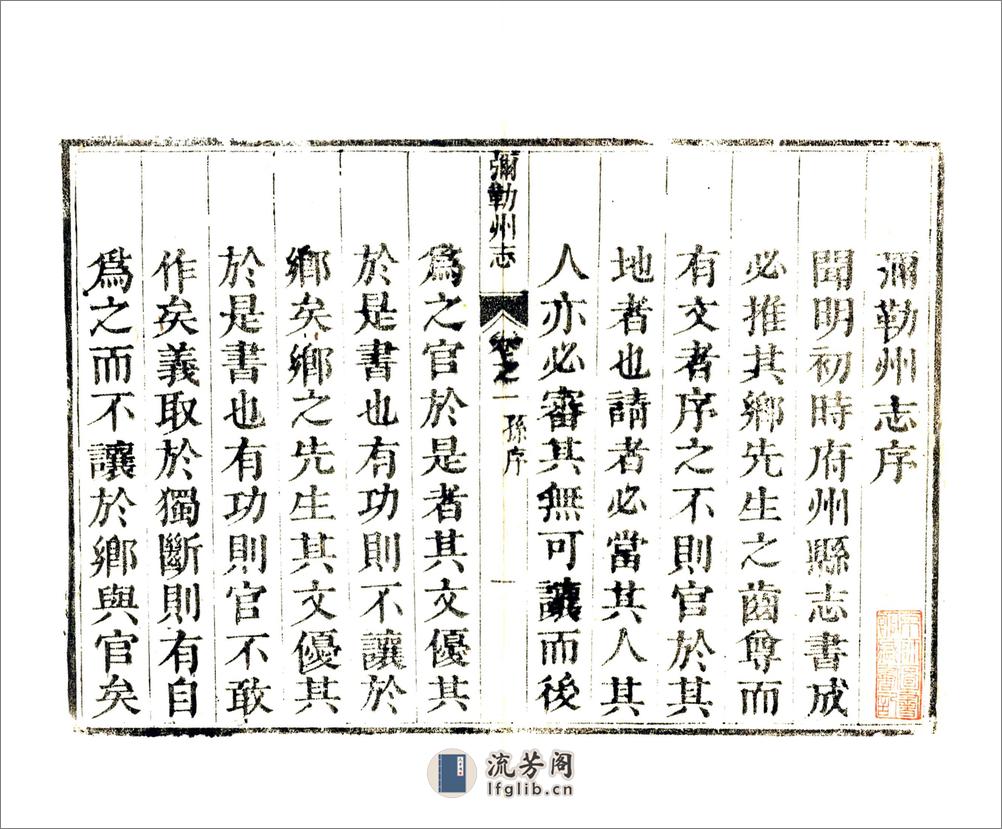 彌勒州志序
聞明初時府州縣志書成
必推其鄉先生之齒尊而
有文者序之不則官於其
地者也請者必當其人其
人亦必審其無可讓而後
彌勒州志
卷之一
孫序
一
爲之官於是者其文優其
於是書也有功則不讓於
鄉矣鄉之先生其文優其
於是書也有功則官不敢
作矣義取於獨斷則有自
爲之而不讓於鄉與官矣
流芳阁
lfglib.cn